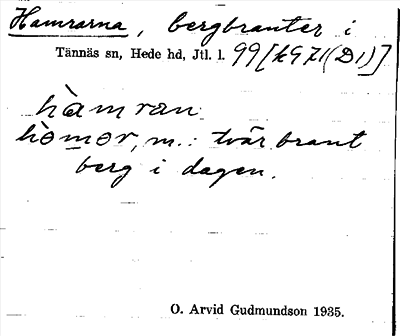 Hamrarna, bergbranter i
Tännäs sn, Hede hd, Jtl. l. 99 [k971(D1)]
hàmran
hòmər, m.: tvär brant
berg i dagen.
O. Arvid Gudmundson 1935.